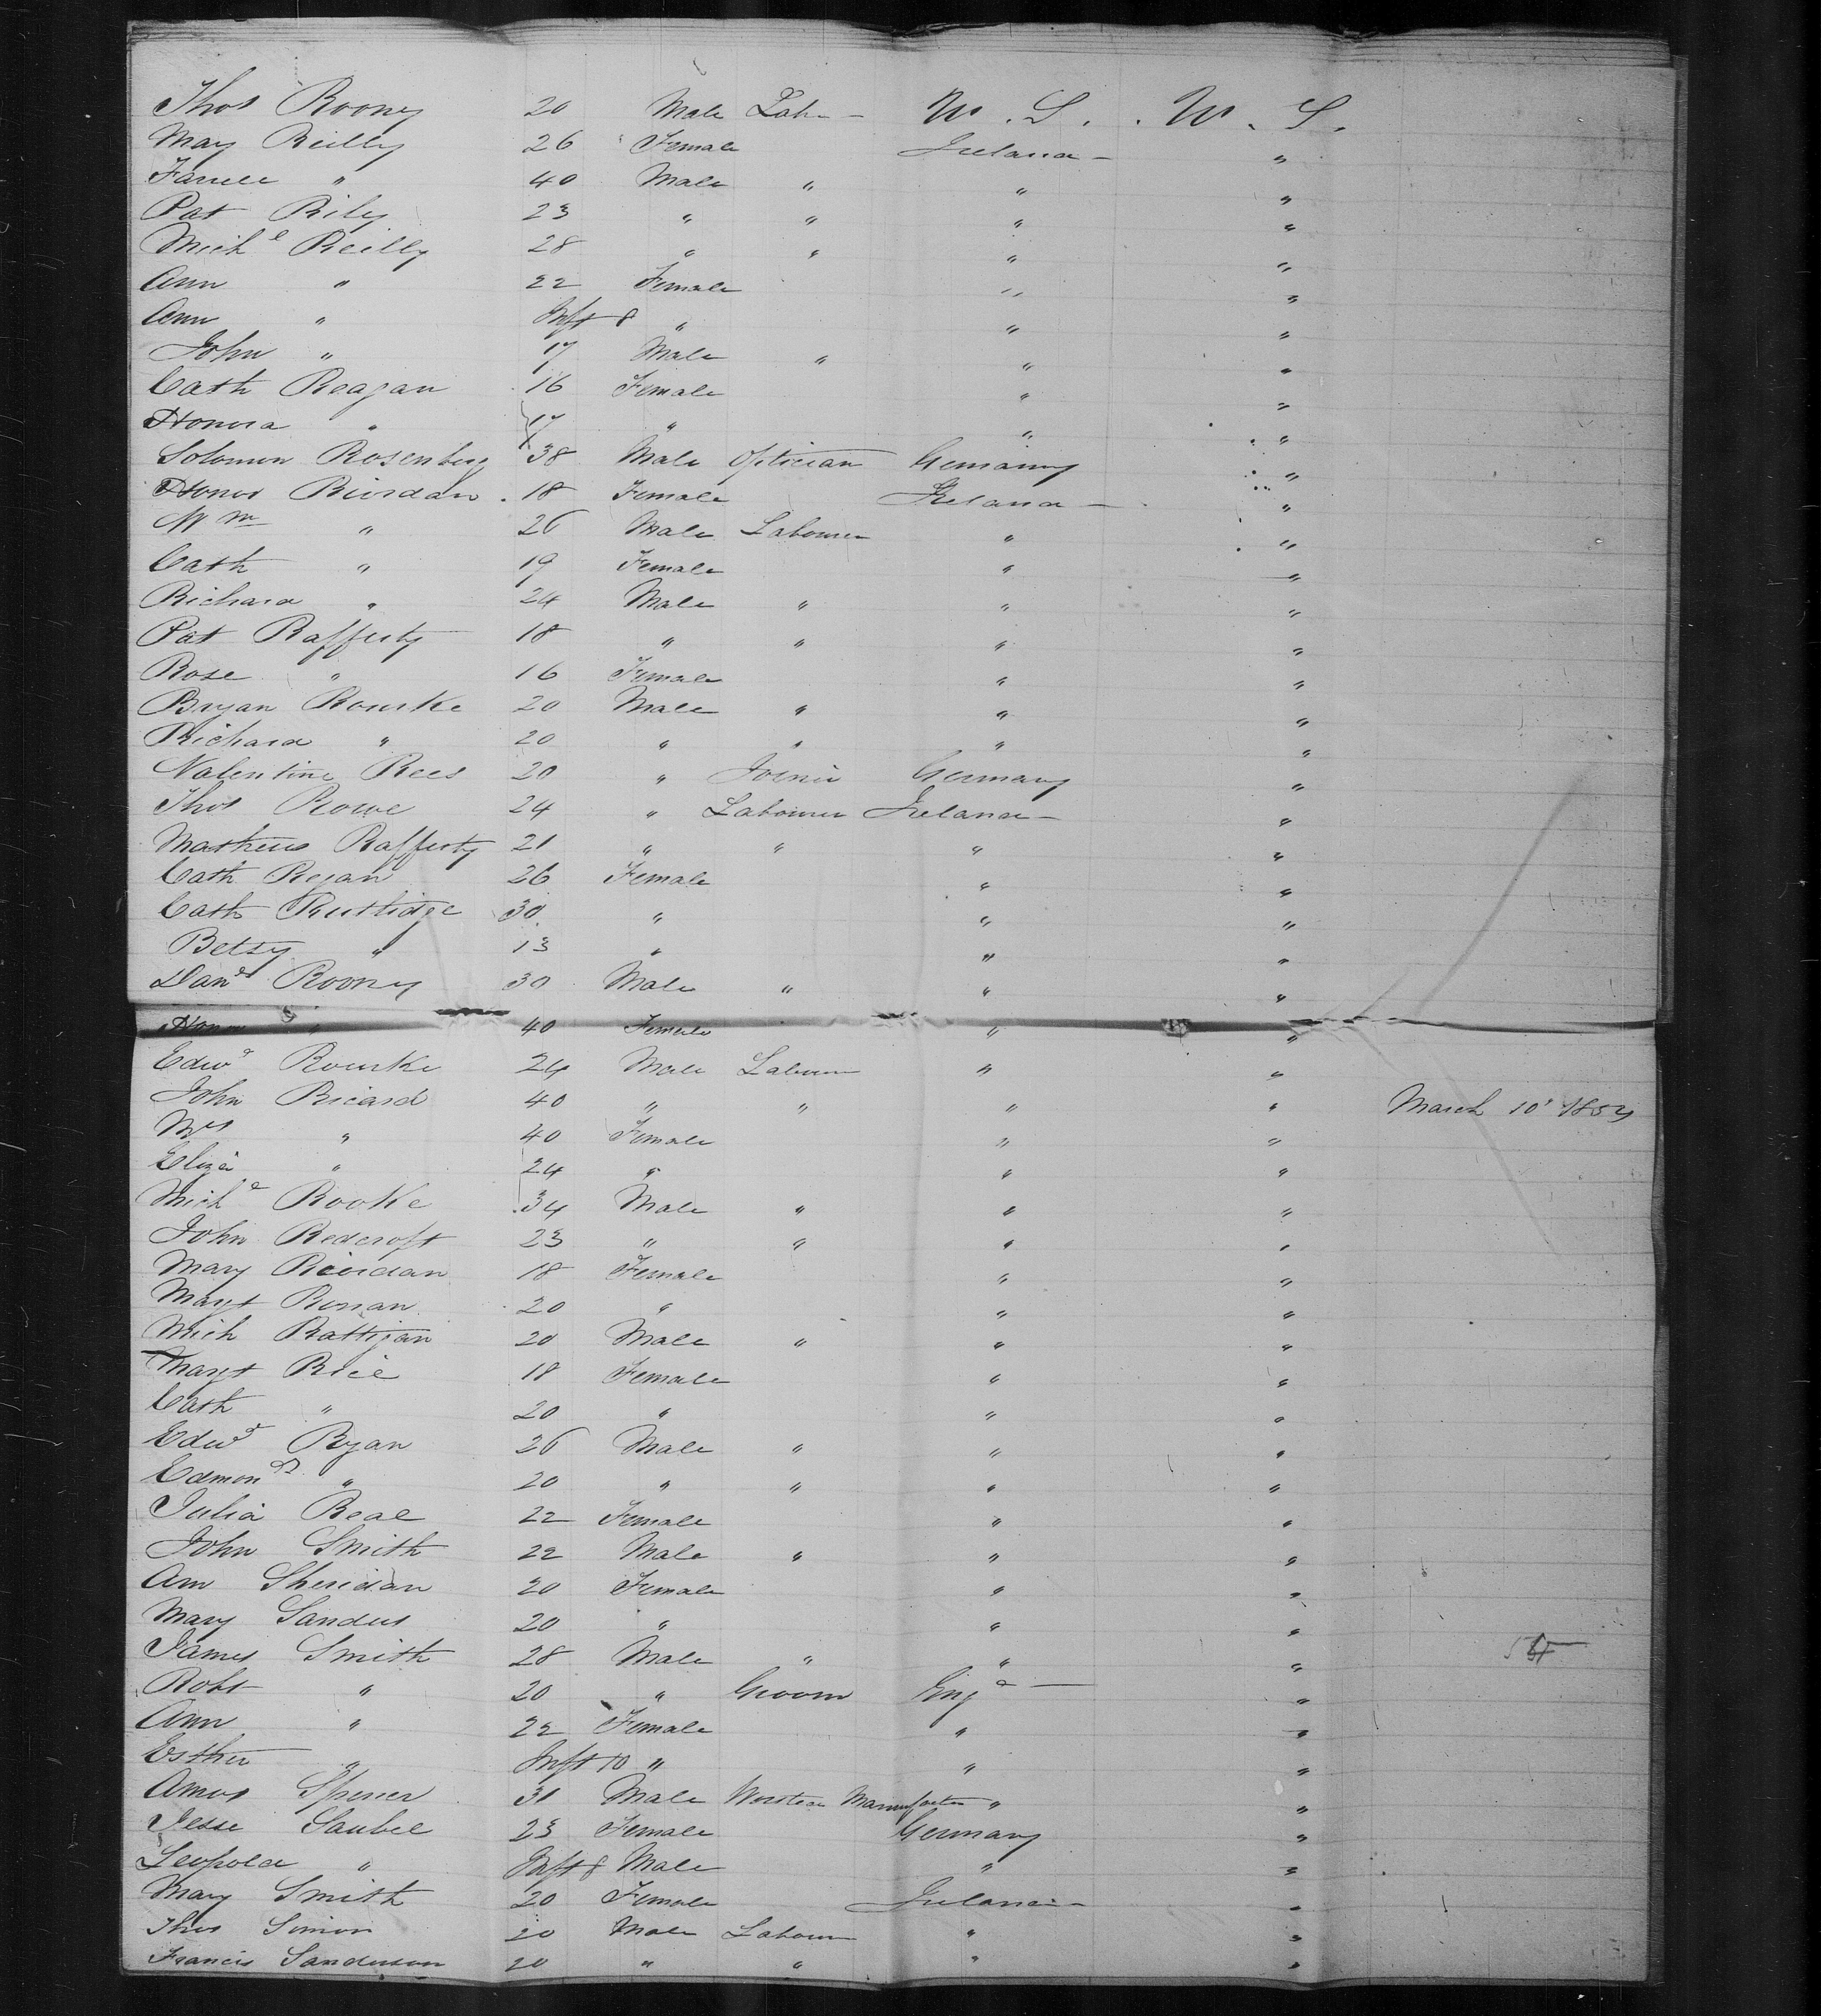 Thos Roony 20 Male Labr — U. S. U. S.
Mary Reilly 26 Female Ireland — "
Farrell " 40 Male " " "
Pat Rily 23 " " " "
Michl Reilly 28 " " " "
Ann " 22 Female " "
Ann " Inft 8 " " "
John " 17 Male " " "
Cath Reagan 16 Female " "
Honora " 17 " " "
Solomon Rosenberg 38 Male Optician Germany "
Honor Riordan 18 Female Ireland — "
Wm " 26 Male Labourer " "
Cath " 19 Female " "
Richard " 24 Male " " "
Pat Rafferty 18 " " " "
Rose " 16 Female " "
Bryan Rourke 20 Male " " "
Richard " 20 " " " "
Valentine Rees 20 " Joiner Germany "
Thos Rowe 24 " Labourer Ireland — "
Mathew Rafferty 21 " " " "
Cath Regan 26 Female " "
Cath Rutlidge 30 " " "
Betsy " 13 " " "
Danl Roony 30 Male " " "
Honor " 40 Female " "
Edwd Rourke 24 Male Labourer " "
John Ricard 40 " " " " March 10 1854
Mrs " 40 Female " "
Eliza " 24 " " "
Michl Rooke 34 Male " " "
John Redcroft 23 " " " "
Mary Riordan 18 Female " "
Margt Ronan 20 " " "
Mich Rattigan 20 Male " " "
Margt Rice 18 Female " "
Cath " 20 " " "
Edwd Ryan 26 Male " " "
Edmond " 20 " " " "
Julia Reae 22 Female " "
John Smith 22 Male " " "
Ann Sheridan 20 Female " "
Mary Sanders 20 " " "
James Smith 28 Male " " "
Robt " 20 " Groom Engd — "
Ann " 22 Female " "
Esther " Inft 10 " " "
Amos Spencer 31 Male Worsted Manufacter " "
Jesse Saubel 23 Female Germany "
Leopold " Inft 8 Male " "
Mary Smith 20 Female Ireland — "
Thos Simon 20 Male Labourer " "
Francis Sanderson 20 " " " "